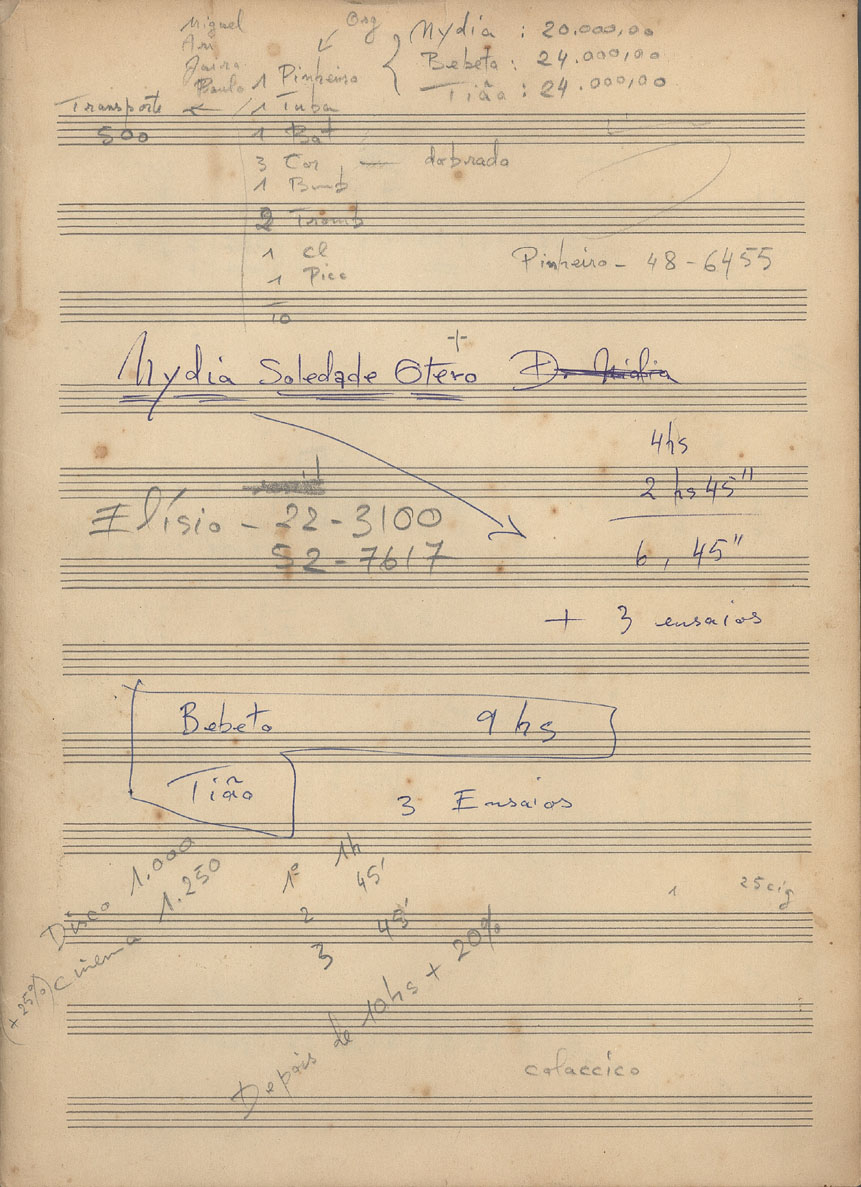 Miguel
Ari
Jaira
Paulo
Org
Nydia : 20.000,00
Bebeto : 24.000,00
Tião : 24.000,00
Transporte
500
1 Pinheiro
1 Tuba
1 Bat
3 Cor — dobrado
1 Bomb
2 Tromb
1 Cl
1 Picc
10
Pinheiro - 48-6455
+
Nydia Soledade Otero D. Nidia
4hs
2 hs 45"
6, 45"
Elísio - 22-3100
52-7617
+ 3 ensaios
Bebeto 9 hs
Tião
3 Ensaios
Disco 1.000
Cinema 1.250
(+25%)
1º 1h 45'
2 45'
3
Depois de 10hs + 20%
1 25cig
colaccico